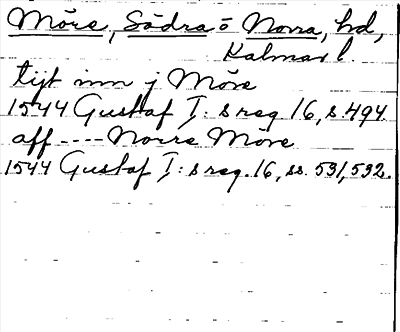 Möre, Södra o Norra, hd,
Kalmar l.
tijt inn j Möre
1544 Gustaf I: s reg 16, s. 494.
aff ---- Norre Möre
1544 Gustaf I: s reg. 16, ss. 531, 532.